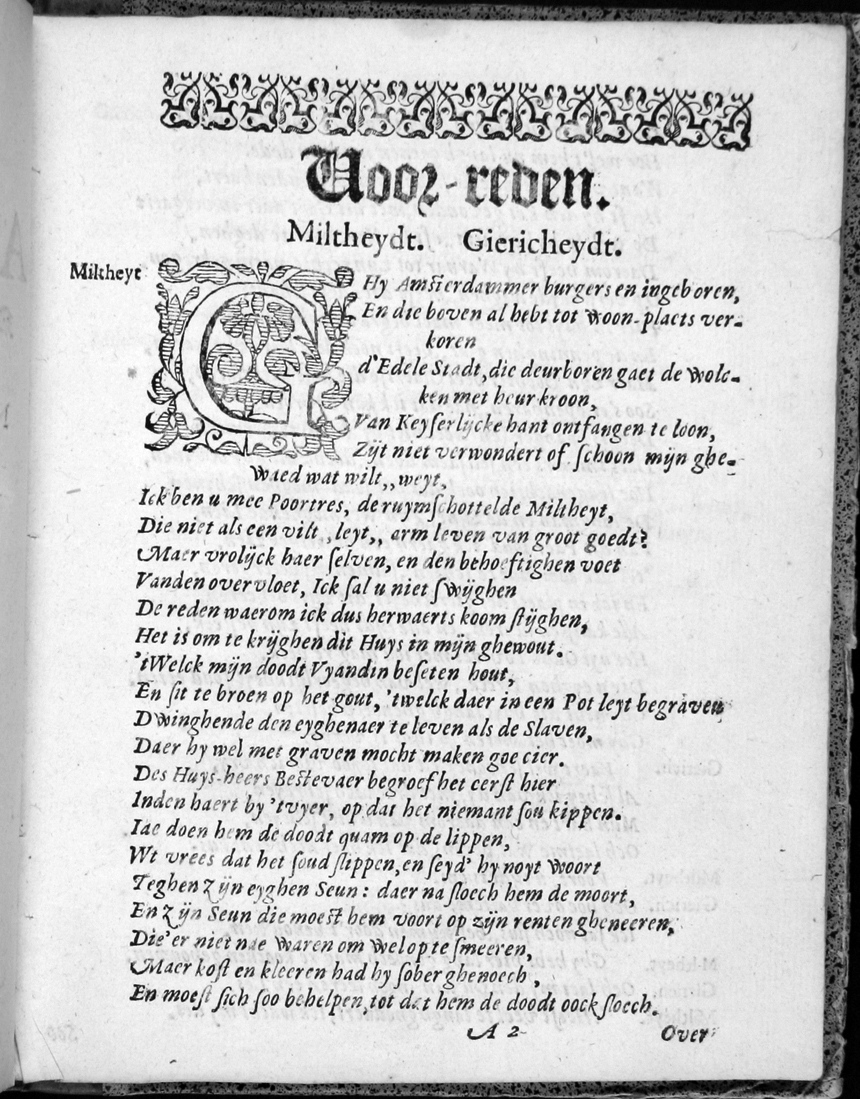 Voor-reden.
Miltheydt. Giericheydt.
Miltheyt
GHy Amsterdammer burgers en ingeboren,
En die boven al hebt tot woon-plaets ver-
koren
d'Edele Stadt, die deurboren gaet de wolc-
ken met heur kroon,
Van Keyserlijcke hant ontfangen te loon,
Zijt niet verwondert of schoon mijn ghe-
waed wat wilt,, weyt,
Ick ben u mee Poortres, de ruymschottelde Miltheyt,
Die niet als een vilt ,leyt,, arm leven van groot goedt?
Maer vrolijck haer selven, en den behoeftighen voet
Vanden overvloet, Ick sal u niet swijghen
De reden waerom ick dus herwaerts koom stijghen,
Het is om te krijghen dit Huys in mijn ghewout.
'tWelck mijn doodt Vyandin beseten hout,
En sit te broen op het gout, 'twelck daer in een Pot leyt begraven
Dwinghende den eyghenaer te leven als de Slaven,
Daer hy wel met graven mocht maken goe cier.
Des Huys-heers Bestevaer begroef het eerst hier
Inden haert by 'tvyer, op dat het niemant sou kippen.
Iae doen hem de doodt quam op de lippen,
Wt vrees dat het soud slippen, en seyd' hy noyt woort
Teghen zijn eyghen Seun: daer na sloech hem de moort,
En zijn Seun die moest hem voort op zijn renten gheneeren,
Die'er niet nae waren om wel op te smeeren,
Maer kost en kleeren had hy sober ghenoech,
En moest sich soo behelpen, tot dat hem de doodt oock sloech.
A 2
Over